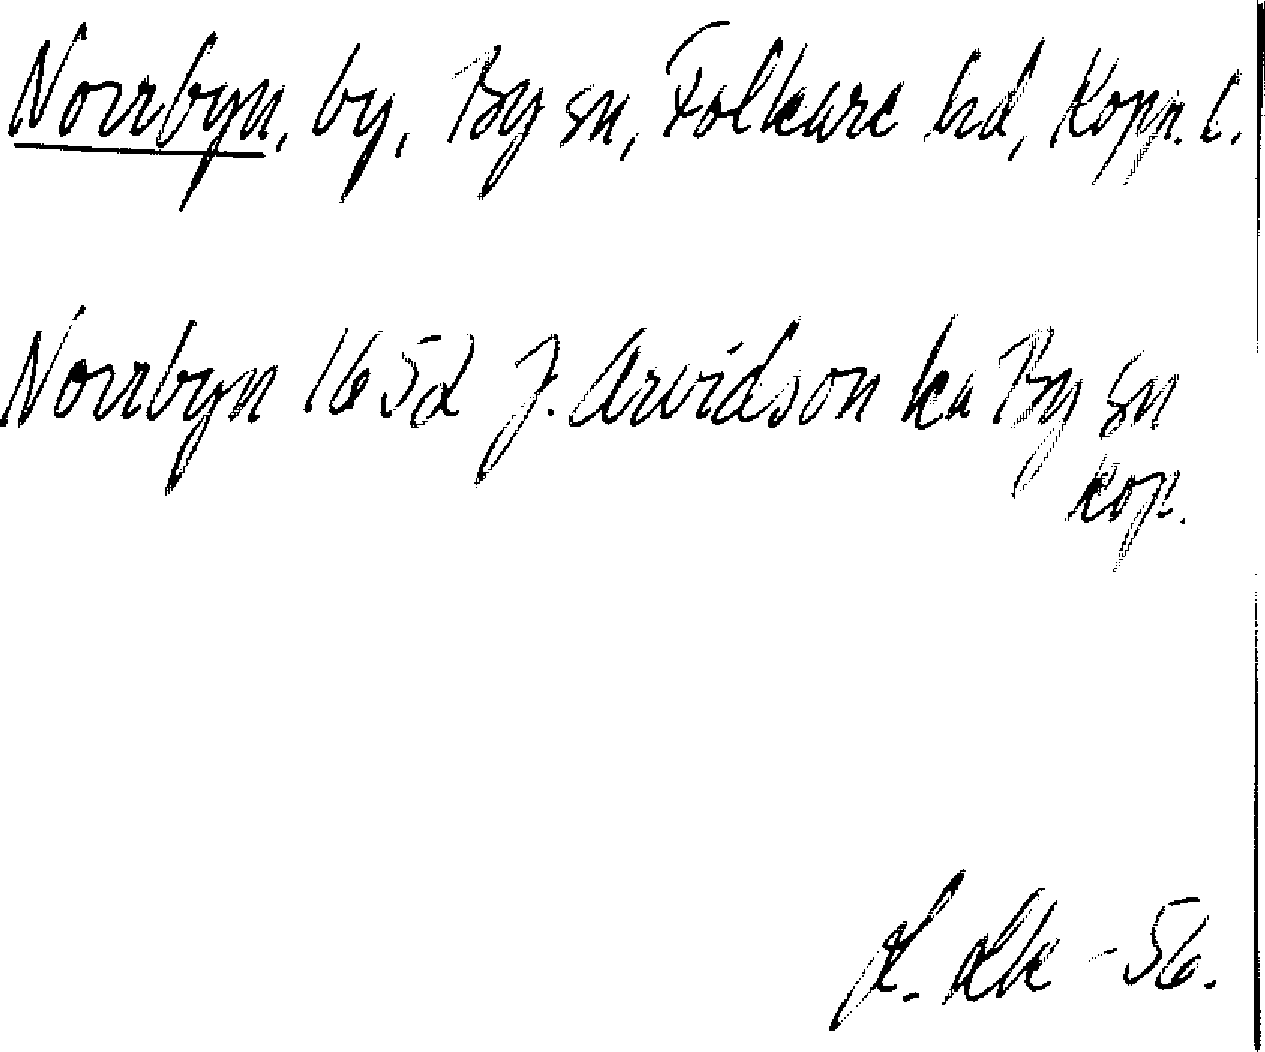 Norrbyn, by, By sn, Folkare hd, Kopp. l.
Norrbyn 1652 J. Arvidson ka By sn
kop.
-56.